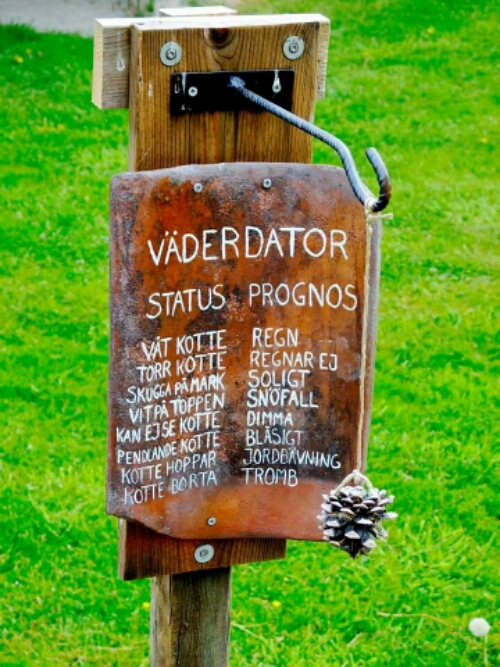 VÄDERDATOR
STATUS PROGNOS
VÅT KOTTE REGN
TORR KOTTE REGNAR EJ
SKUGGA PÅ MARK SOLIGT
VIT PÅ TOPPEN SNÖFALL
KAN EJ SE KOTTE DIMMA
PENDLANDE KOTTE BLÅSIGT
KOTTE HOPPAR JORDBÄVNING
KOTTE BORTA TROMB